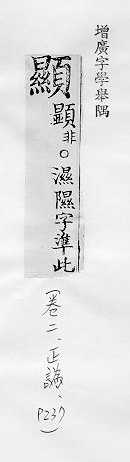 增廣字學舉隅
顯 顕非○濕隰字準此
(卷二、正譌、P237)